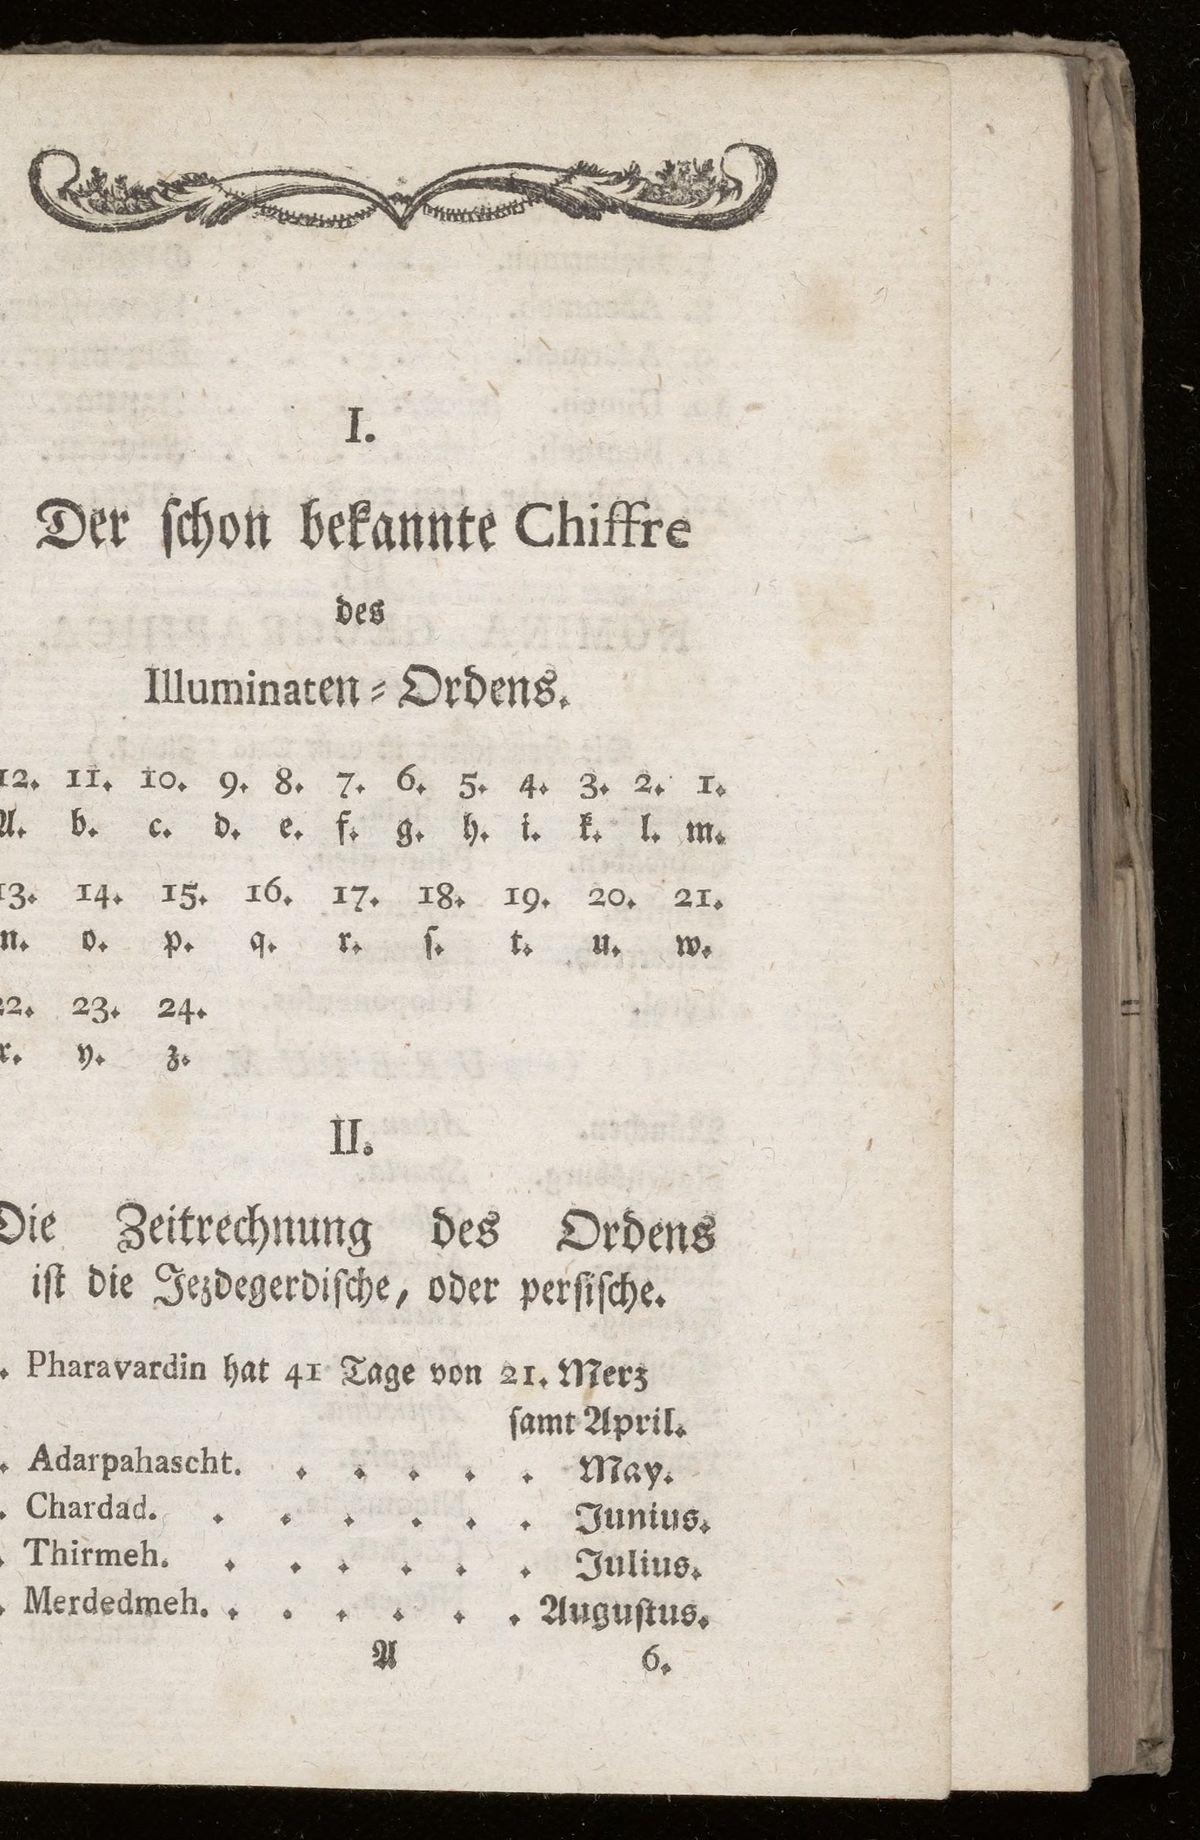 I.
Der schon bekannte Chiffre
des
Illuminaten-Ordens.
12. 11. 10. 9. 8. 7. 6. 5. 4. 3. 2. 1.
A. b. c. d. e. f. g. h. i. k. l. m.
13. 14. 15. 16. 17. 18. 19. 20. 21.
n. o. p. q. r. s. t. u. w.
22. 23. 24.
x. y. z.
II.
Die Zeitrechnung des Ordens
ist die Jezdegerdische, oder persische.
. Pharavardin hat 41 Tage von 21. Merz
samt April.
. Adarpahascht. . . . . . May.
. Chardad. . . . . . . Junius.
. Thirmeh. . . . . . . Julius.
. Merdedmeh. . . . . . . Augustus.
A 6.